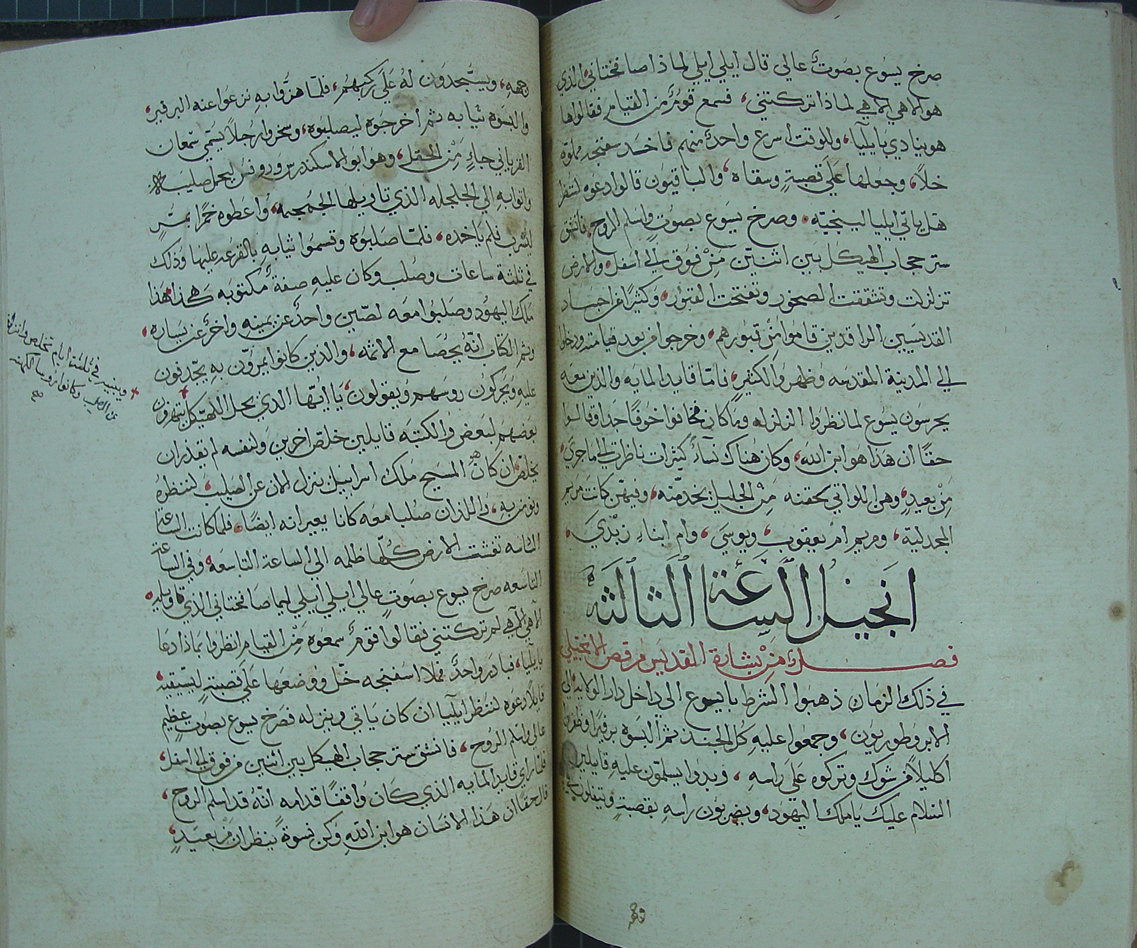 صرخ يسوع بصوت عالي قال ايلي ايلي لماذا صافختاني الذي
هو الاهي الاهي لماذا تركتني، فسمع قومٌ من القيام فقالوا ها
هو ينادي بايليا، وللوقت اسرع واحدٌ منهم فاخد سفنجه مملوّه
خلاً، وجعلها على قصبةٍ وسقاه، والباقيون قالوا دعوه لننظر
هل ياتي ايليا لينجيّه، وصرخ يسوع بصوتٍ واسلم الروح، فانشق
ستر حجاب الهيكل بين اثنتين من فوق الى اسفل، والارض
تزلزلت وتشققت الصخور وتفتحت القبور، وكثيرًا من اجساد
القديسيين الراقدين قاموا من قبورهم، وخرجوا من بعد قيامته ودخلوا
الى المدينة المقدسه وظهروا لكثيرٍ، فامّا قايد المايه والذين معه
يحرسون يسوع لما نظروا الزلزله وما كان فخافوا خوفًا جدا وقالوا
حقًا ان هذا هو ابن الله، وكان هناك نساءٌ كثيرات ناظرات الى ما جرى
من بعيدٍ، وهن اللواتي لحقنه من الجليل يخدمنه، وفيهن كانت مريم
المجدلية، ومريم ام يعقوب ويوسى، وام ابناء زبدي،
انجيل الساعة الثالثة
فصلٌ من بشارة القديس مرقص الانجيلي
في ذلك الزمان ذهبوا الشرط بايسوع الى داخل دار الولاية الى
الابروطوريون، وجمعوا عليه كل الجند ثم البسوه برفيرا وظفروا
اكليلاً من شوك وتركوه على راسه، وبدوا يسلمون عليه قايلين
السلام عليك يا ملك اليهود، ويضربون راسه بقصبةٍ ويتفلون في
وجهه، ويسجدون له على ركبهم، فلما هزوا به نزعوا عنه البرفير،
والبسوه ثيابه ثم اخرجوه ليصلبوه، وسخروا رجلاً يسمى سمعان
القرياني جاءٍ من الحقل، وهو ابو الاسكندرس وروفس ليحمل صليبه
واتوا به الى الجلجله الذي تاويلها الجمجمه، واعطوه خمرًا بمرٍ
ليشرب فلم ياخده، فلما صلبوه وقسموا ثيابه بالقرعه عليها وذلك
في ثلثة ساعات وصلب وكان عليه صفة مكتوبه هكذا هذا
ملك اليهود وصلبوا معه لصّين واحدٌ عن يمينه واخرٌ عن يساره،
وتم الكتاب انه يحُصا مع الاثمه، والذين كانوا يمرّون به يجدبون
عليه ويحركون روسهم ويقولون، يا ايها الذي يحل الهيكل
بعضهم لبعض والكتبه قايلين خلص اخرين ولنفسه لم يقدر ان
يخلص ان كان المسيح ملك اسراييل ينزل الان عن الصليب لننظره
ونومن به، واللذان صلبا معه كانا يعيرانه ايضًا، فلما كانت الساعة
السادسه تغشت الارض كلها ظلمه الى الساعة التاسعه وفي الساعة
التاسعه صرخ يسوع بصوتٍ عالي ايلي ايلي لما صافختاني الذي تاويله
الاهي الاهي لم تركتني فقالوا قوم سمعوه من القيام انظروا ماذا دعا
بايليا، فبادر واحدٌ فملا اسفنجه خل ووضعها على قصبه ليسقيه
قايلا دعوه لننظر ايليا ان كان ياتي وينزله فصرخ يسوع بصوت عظيم
عالي واسلم الروح، فانشق ستر حجاب الهيكل بين اثنين من فوق الى اسفل،
فلما راى قايد المايه الذي كان واقفًا قدامه انه قد اسلم الروح،
قال حقًا ان هذا الانسان هو ابن الله وكن نسوة ينظران من بعيدٍ،
ويبنيه في ثلثة ايام خلص ذاتك وانزل
عن الصليب وكانوا روسا الكهنه